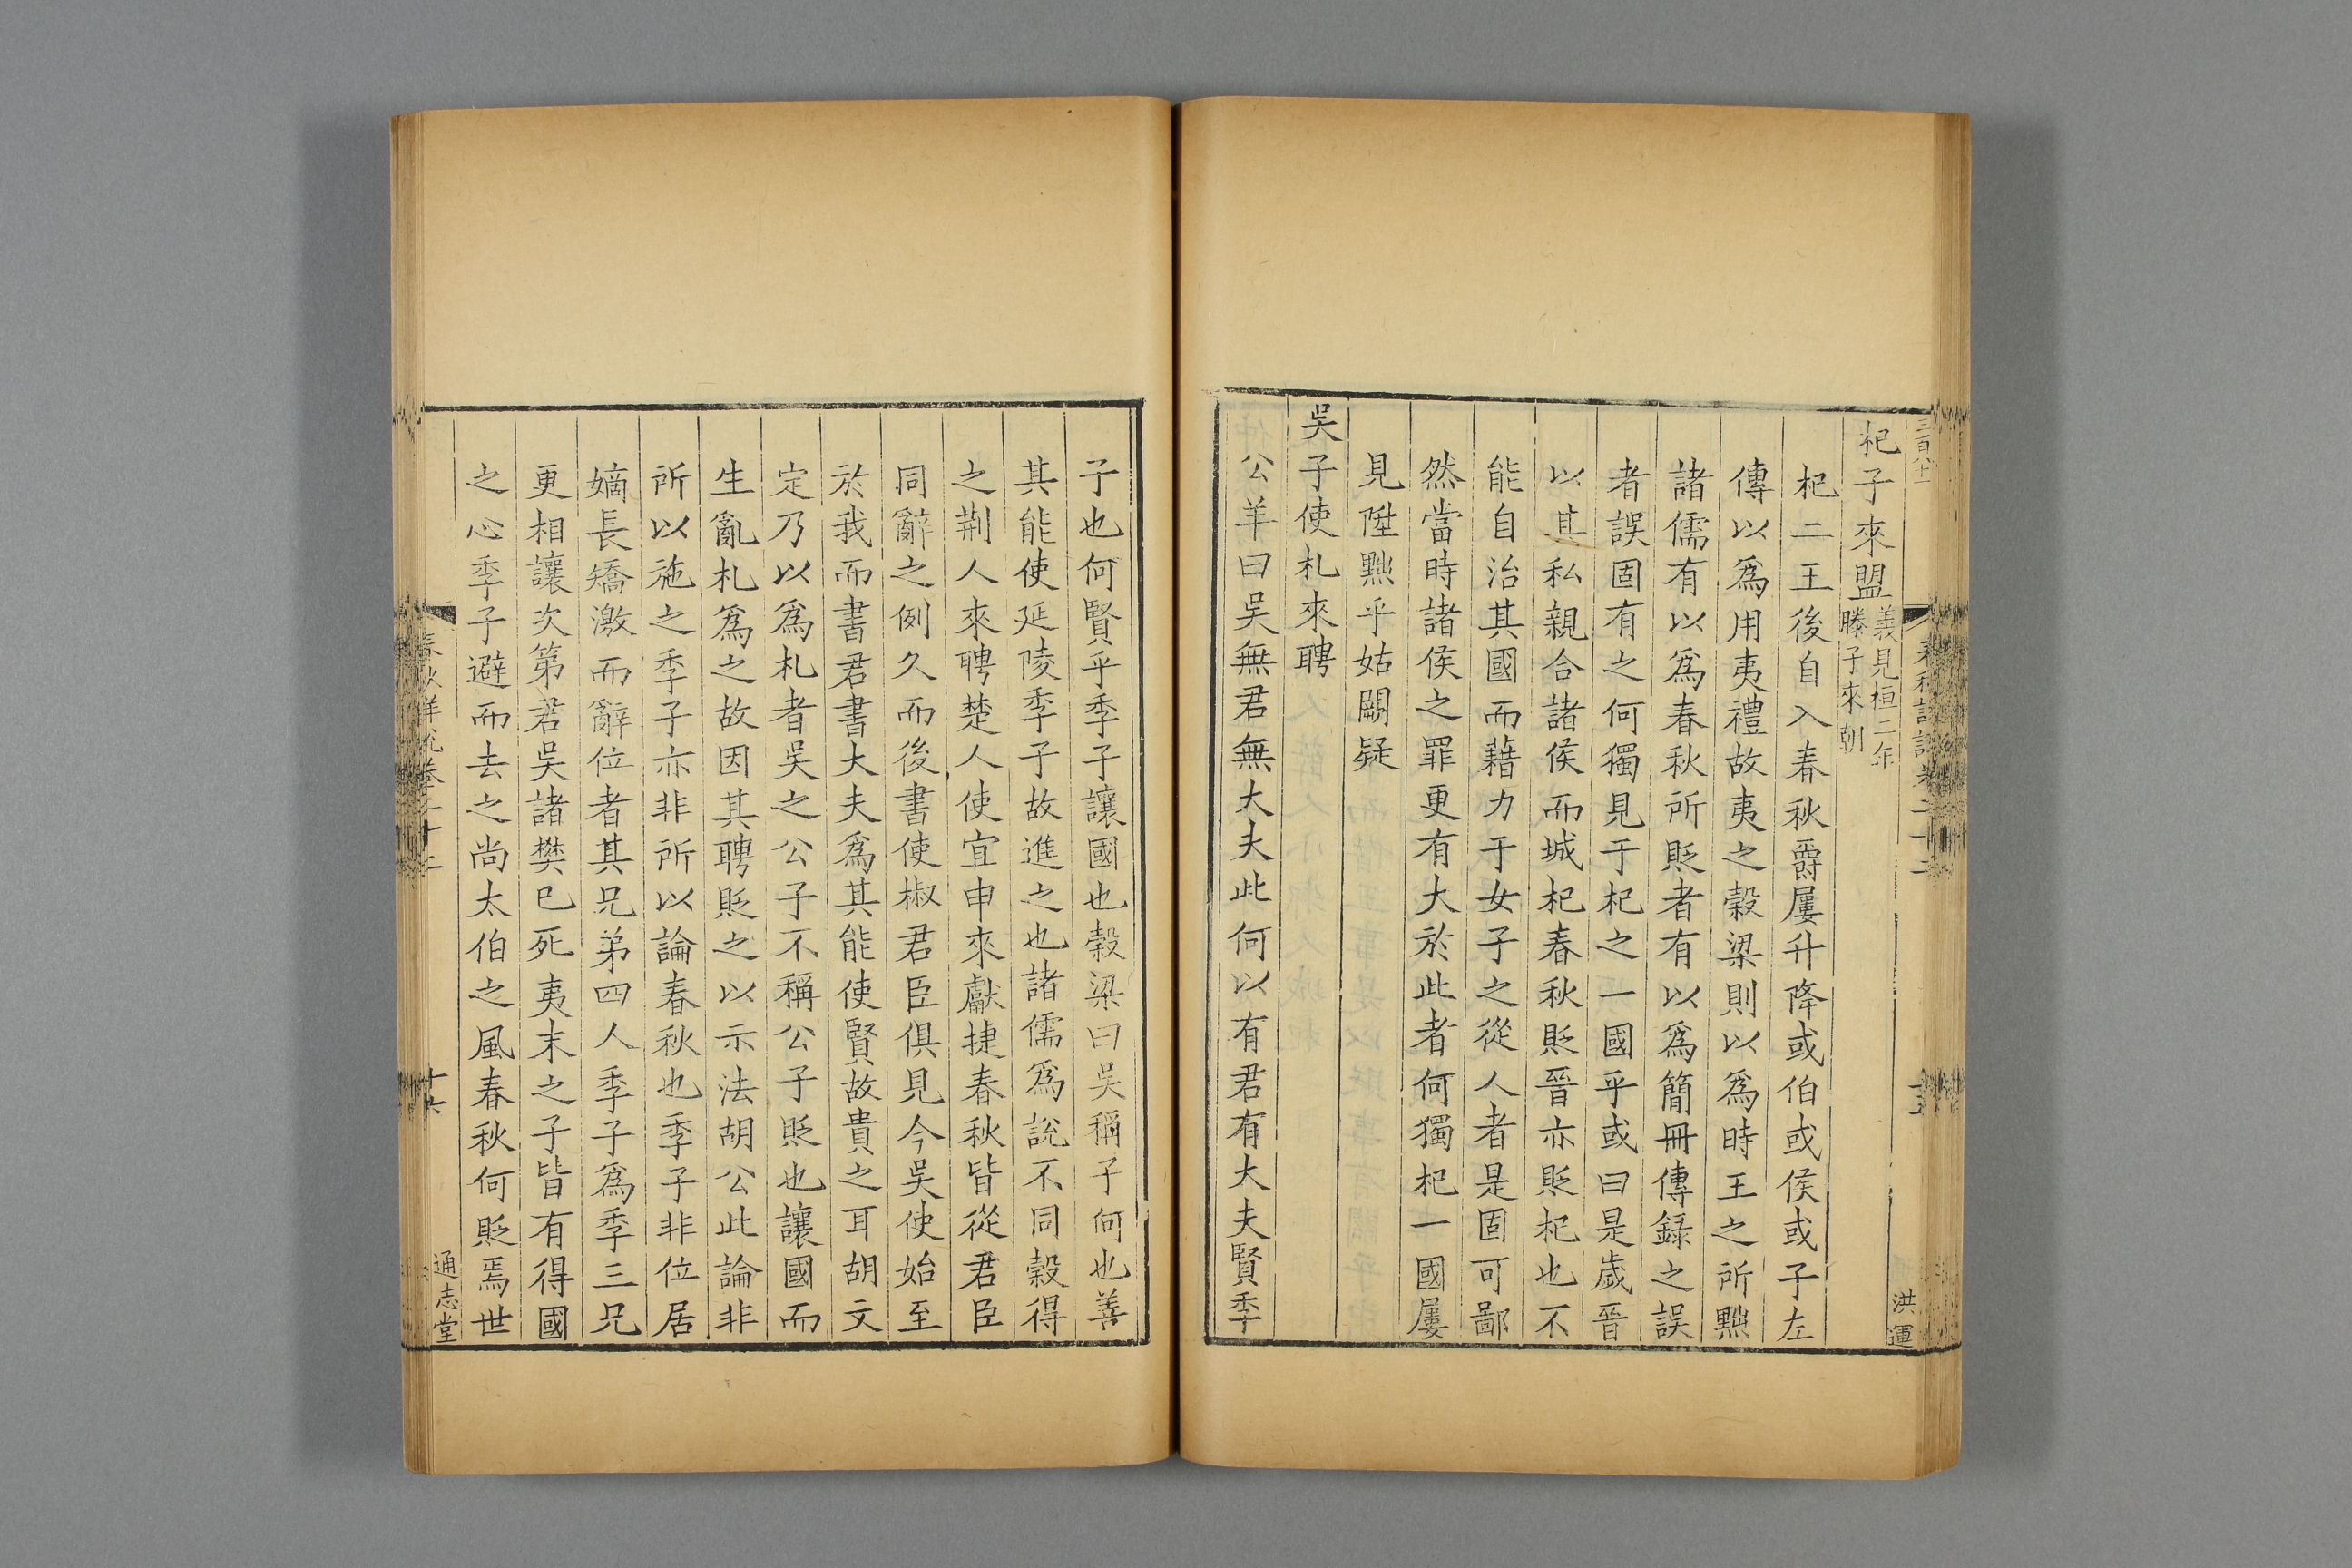 杞子來盟義見桓二年滕子來朝
杞二王後自入春秋爵屢升降或伯或侯或子左
傳以爲用夷禮故夷之榖梁則以爲時王之所黜
諸儒有以爲春秋所貶者有以爲簡冊傳録之誤
者誤固有之何獨見于杞之一國乎或曰是歲晉
以其私親合諸侯而城杞春秋貶晉亦貶杞也不
能自治其國而藉力于女子之從人者是固可鄙
然當時諸侯之罪更有大於此者何獨杞一國屢
見陞黜乎姑闕疑
吳子使札來聘
公羊曰吳無君無大夫此何以有君有大夫賢季
洪運
子也何賢乎季子讓國也榖梁曰吳稱子何也善
其能使延陵季子故進之也諸儒爲說不同榖得
之荆人來聘楚人使宜申來獻捷春秋皆從君臣
同辭之例久而後書使椒君臣俱見今吳使始至
於我而書君書大夫爲其能使賢故貴之耳胡文
定乃以爲札者吳之公子不稱公子貶也讓國而
生亂札爲之故因其聘貶之以示法胡公此論非
所以施之季子亦非所以論春秋也季子非位居
嫡長矯激而辭位者其兄弟四人季子爲季三兄
更相讓次第君吳諸樊已死夷末之子皆有得國
之心季子避而去之尚太伯之風春秋何貶焉世
春秋詳說卷二十二
十六
通志堂